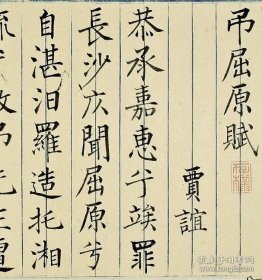 吊屈原賦
賈誼
恭承嘉惠兮竢罪
長沙仄聞屈原兮
自湛汨羅造托湘